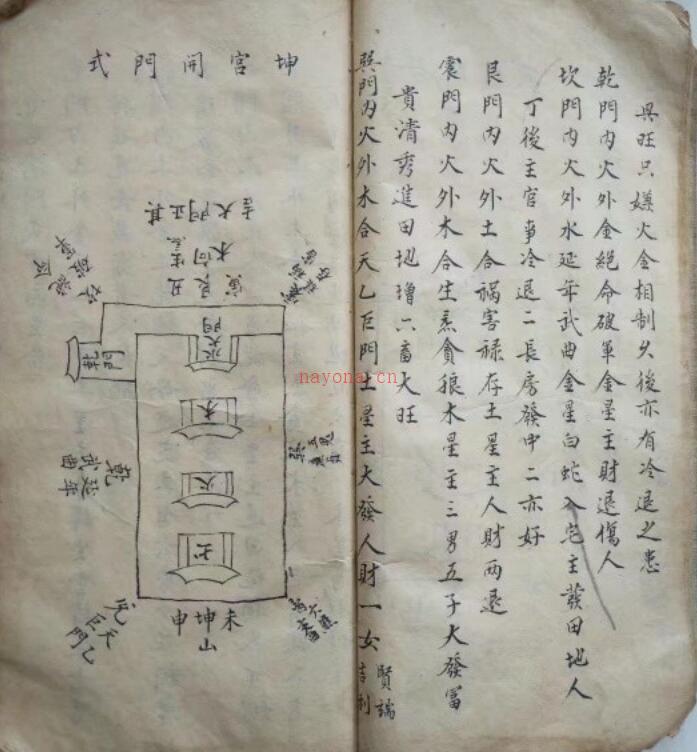 具旺只嫌火金相制久後亦有冷退之患
乾門內火外金絕命破軍金星主財退傷人
坎門內火外水延年武曲金星白蛇入宅主發田地人
丁後主官事冷退二長房發中二亦好
艮門內火外土合禍害祿存土星主人財兩退
震門內火外木合生炁貪狼木星主三男五子大發富
貴清秀進田地增六畜大旺
巽門內火外木合天乙巨門土星主大發人財一女賢端吉利
坤宮開門式
其正門大吉
寅艮丑
木向生炁
水大門
木
火
土
乾
延年
武曲
兌天乙
巨門
未坤申
山
nayona.cn